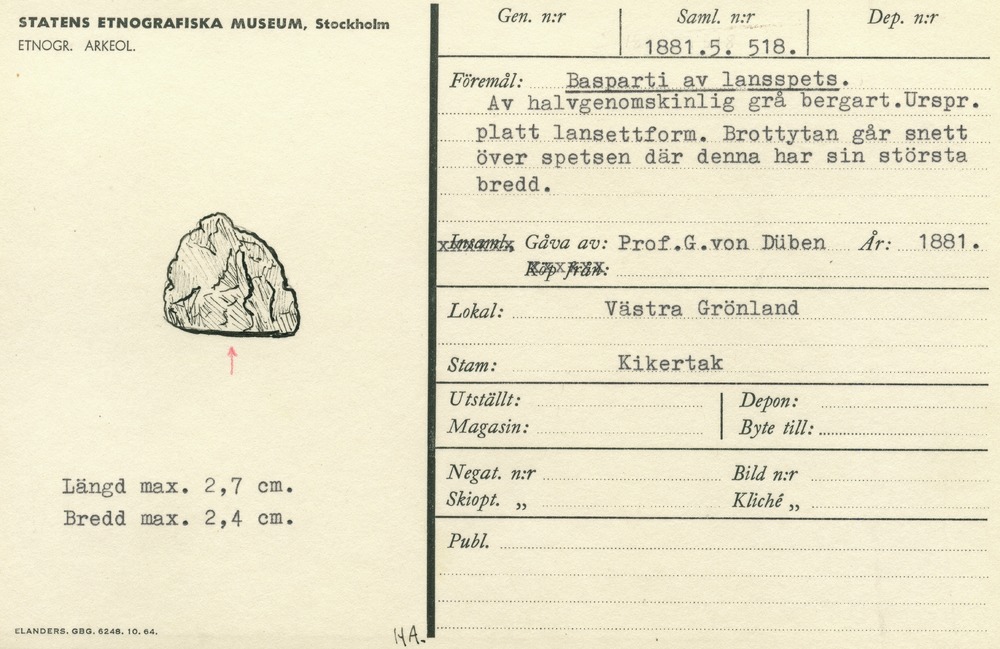 STATENS ETNOGRAFISKA MUSEUM, Stockholm
ETNOGR. ARKEOL.
Längd max. 2,7 cm.
Bredd max. 2,4 cm.
ELANDERS. GBG. 6248. 10. 64.
HA.
Gen. n:r Saml. n:r Dep. n:r
1881.5. 518.
Föremål: Basparti av lansspets.
Av halvgenomskinlig grå bergart.Urspr.
platt lansettform. Brottytan går snett
över spetsen där denna har sin största
bredd.
Insaml. Gåva av: Prof.G.von Düben År: 1881.
Köp från:
Lokal: Västra Grönland
Stam: Kikertak
Utställt: Depon:
Magasin: Byte till:
Negat. n:r Bild n:r
Skiopt. „ Kliché „
Publ.